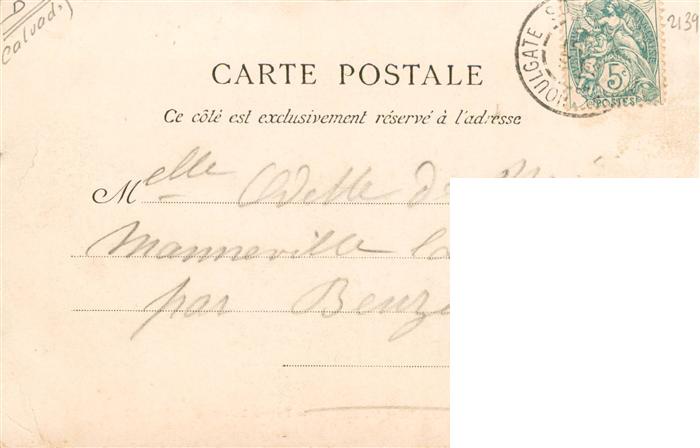 D
Calvad.)
2139
HOULGATE
5c
POSTES
CARTE POSTALE
Ce côté est exclusivement réservé à l'adresse
Melle Odette de
Manneville la
par Beuze